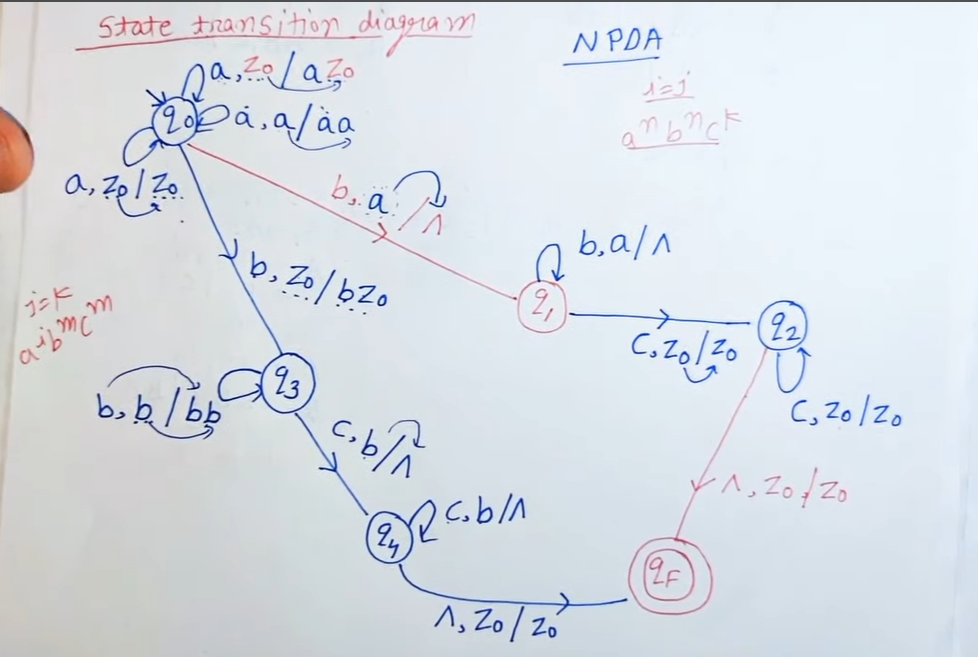 State transition diagram
NPDA
i=j
aⁿbⁿcᵏ
a, z₀/az₀
q₀
a, a/aa
a, z₀/z₀
b, a/Λ
b, z₀/bz₀
b, a/Λ
q₁
q₂
c, z₀/z₀
c, z₀/z₀
j=k
aⁱbᵐcᵐ
q₃
b, b/bb
c, b/Λ
Λ, z₀/z₀
q₄
c, b/Λ
qF
Λ, z₀/z₀